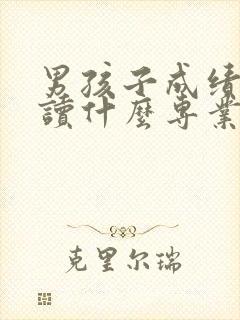 男孩子成绩
讀什麼専業
克里尔瑞